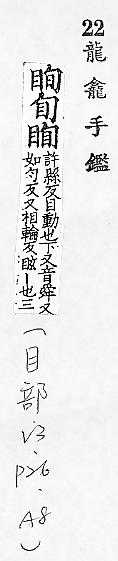 22 龍龕手鑑
眴旬眴 許縣反目動也下又音舜又
如勻反又相輪反眩丨也三
(目部.v3.p26.A8)